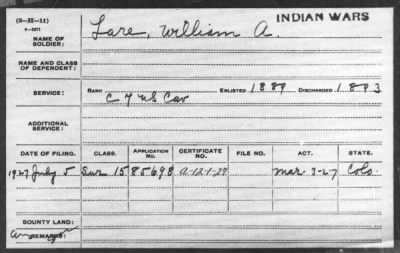 (3-II-11)
INDIAN WARS
NAME OF SOLDIER: Lare, William A.
NAME AND CLASS OF DEPENDENT:
SERVICE: RANK ENLISTED 1889 DISCHARGED 1893
C 7 US Cav
ADDITIONAL SERVICE:
DATE OF FILING. CLASS. APPLICATION NO. CERTIFICATE NO. FILE NO. ACT. STATE.
1927 July 5 Sur 1585698 Mar. 3-27 Colo
BOUNTY LAND:
REMARKS: